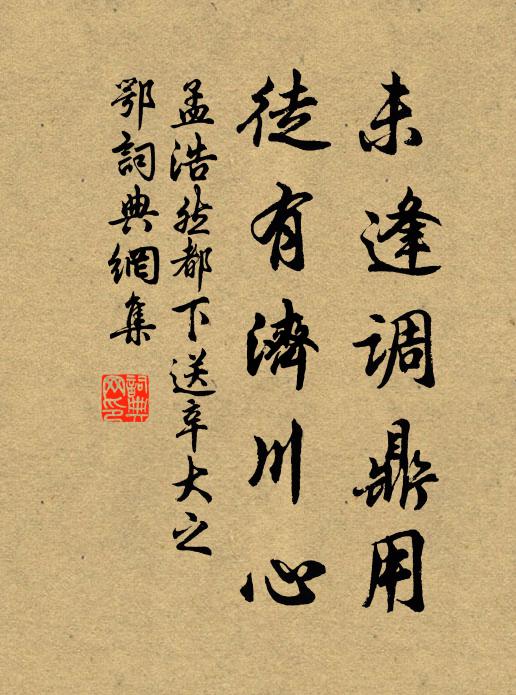 未逢调鼎用
徒有濟川心
孟浩然都下送辛大之
鄂詞典網集
詞典网印